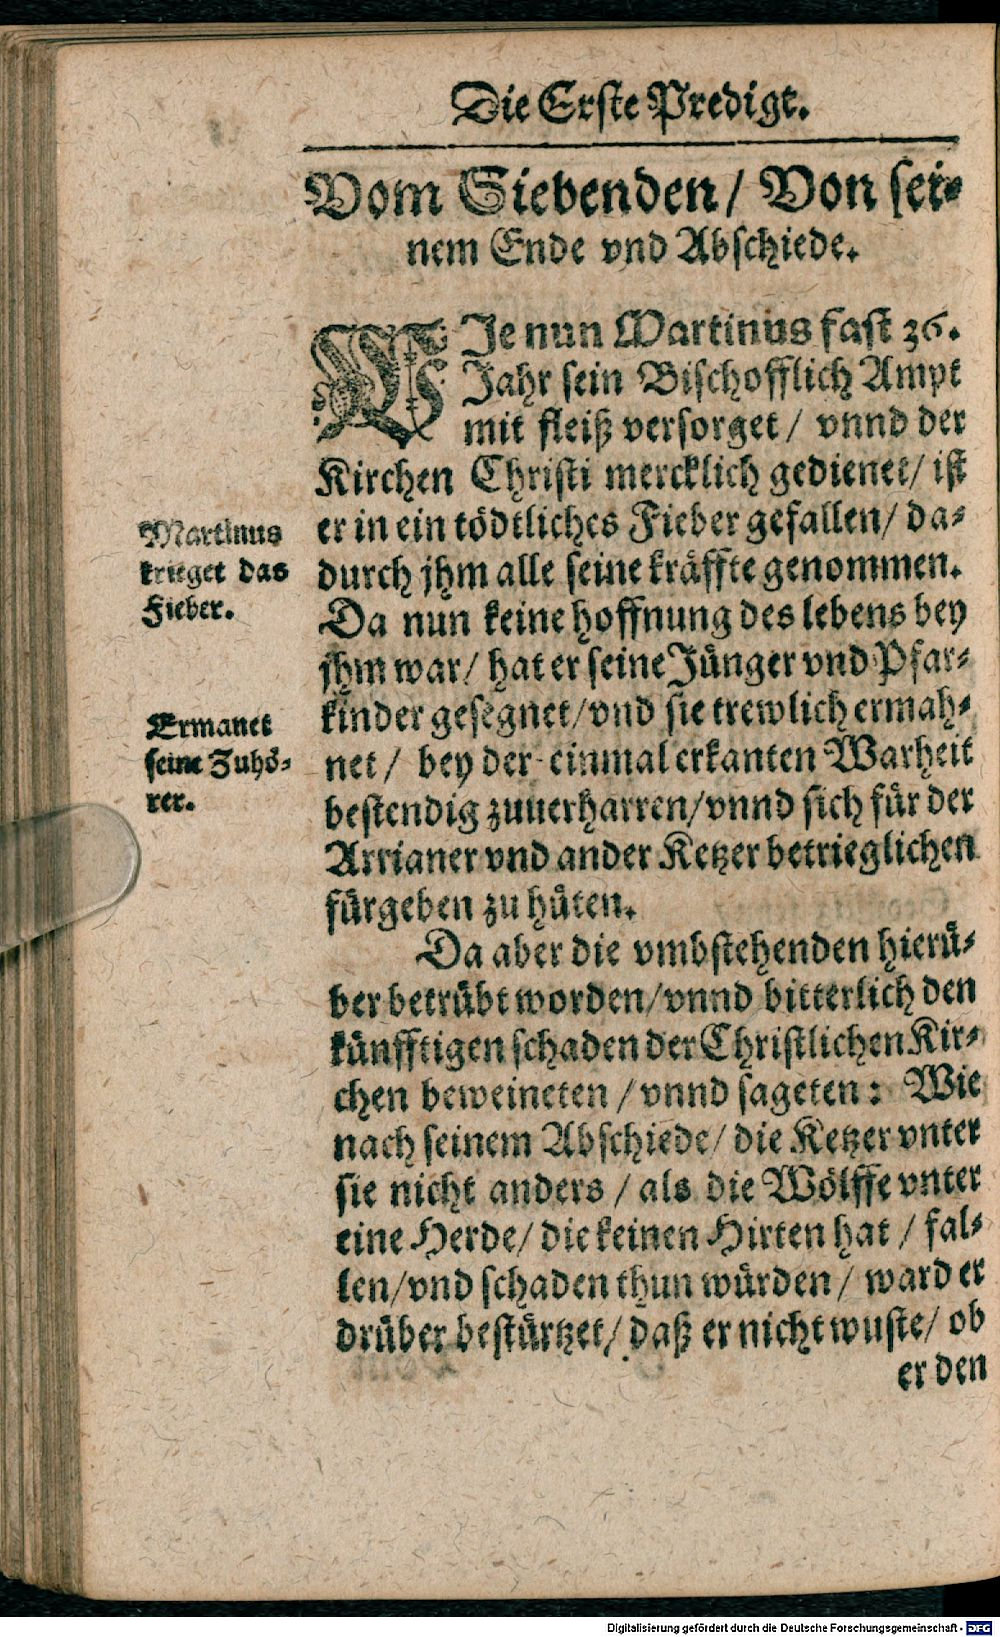 Die Erste Predigt.
Vom Siebenden/ Von sei-
nem Ende vnd Abschiede.
WJe nun Martinus fast 36.
Jahr sein Bischofflich Ampt
mit fleiß versorget/ vnnd der
Kirchen Christi mercklich gedienet/ ist
er in ein tödtliches Fieber gefallen/ da-
durch jhm alle seine kräffte genommen.
Da nun keine hoffnung des lebens bey
jhm war/ hat er seine Jünger vnd Pfar-
kinder gesegnet/ vnd sie trewlich ermah-
net/ bey der einmal erkanten Warheit
bestendig zuuerharren/ vnnd sich für der
Arrianer vnd ander Ketzer betrieglichen
fürgeben zu hüten.
Martinus
krieget das
Fieber.
Ermanet
seine Zuhö-
rer.
Da aber die vmbstehenden hierü-
ber betrübt worden/ vnnd bitterlich den
künfftigen schaden der Christlichen Kir-
chen beweineten/ vnnd sageten: Wie
nach seinem Abschiede/ die Ketzer vnter
sie nicht anders/ als die Wölffe vnter
eine Herde/ die keinen Hirten hat/ fal-
len/ vnd schaden thun würden/ ward er
drüber bestürtzet/ daß er nicht wuste/ ob
er den
Digitalisierung gefördert durch die Deutsche Forschungsgemeinschaft - DFG